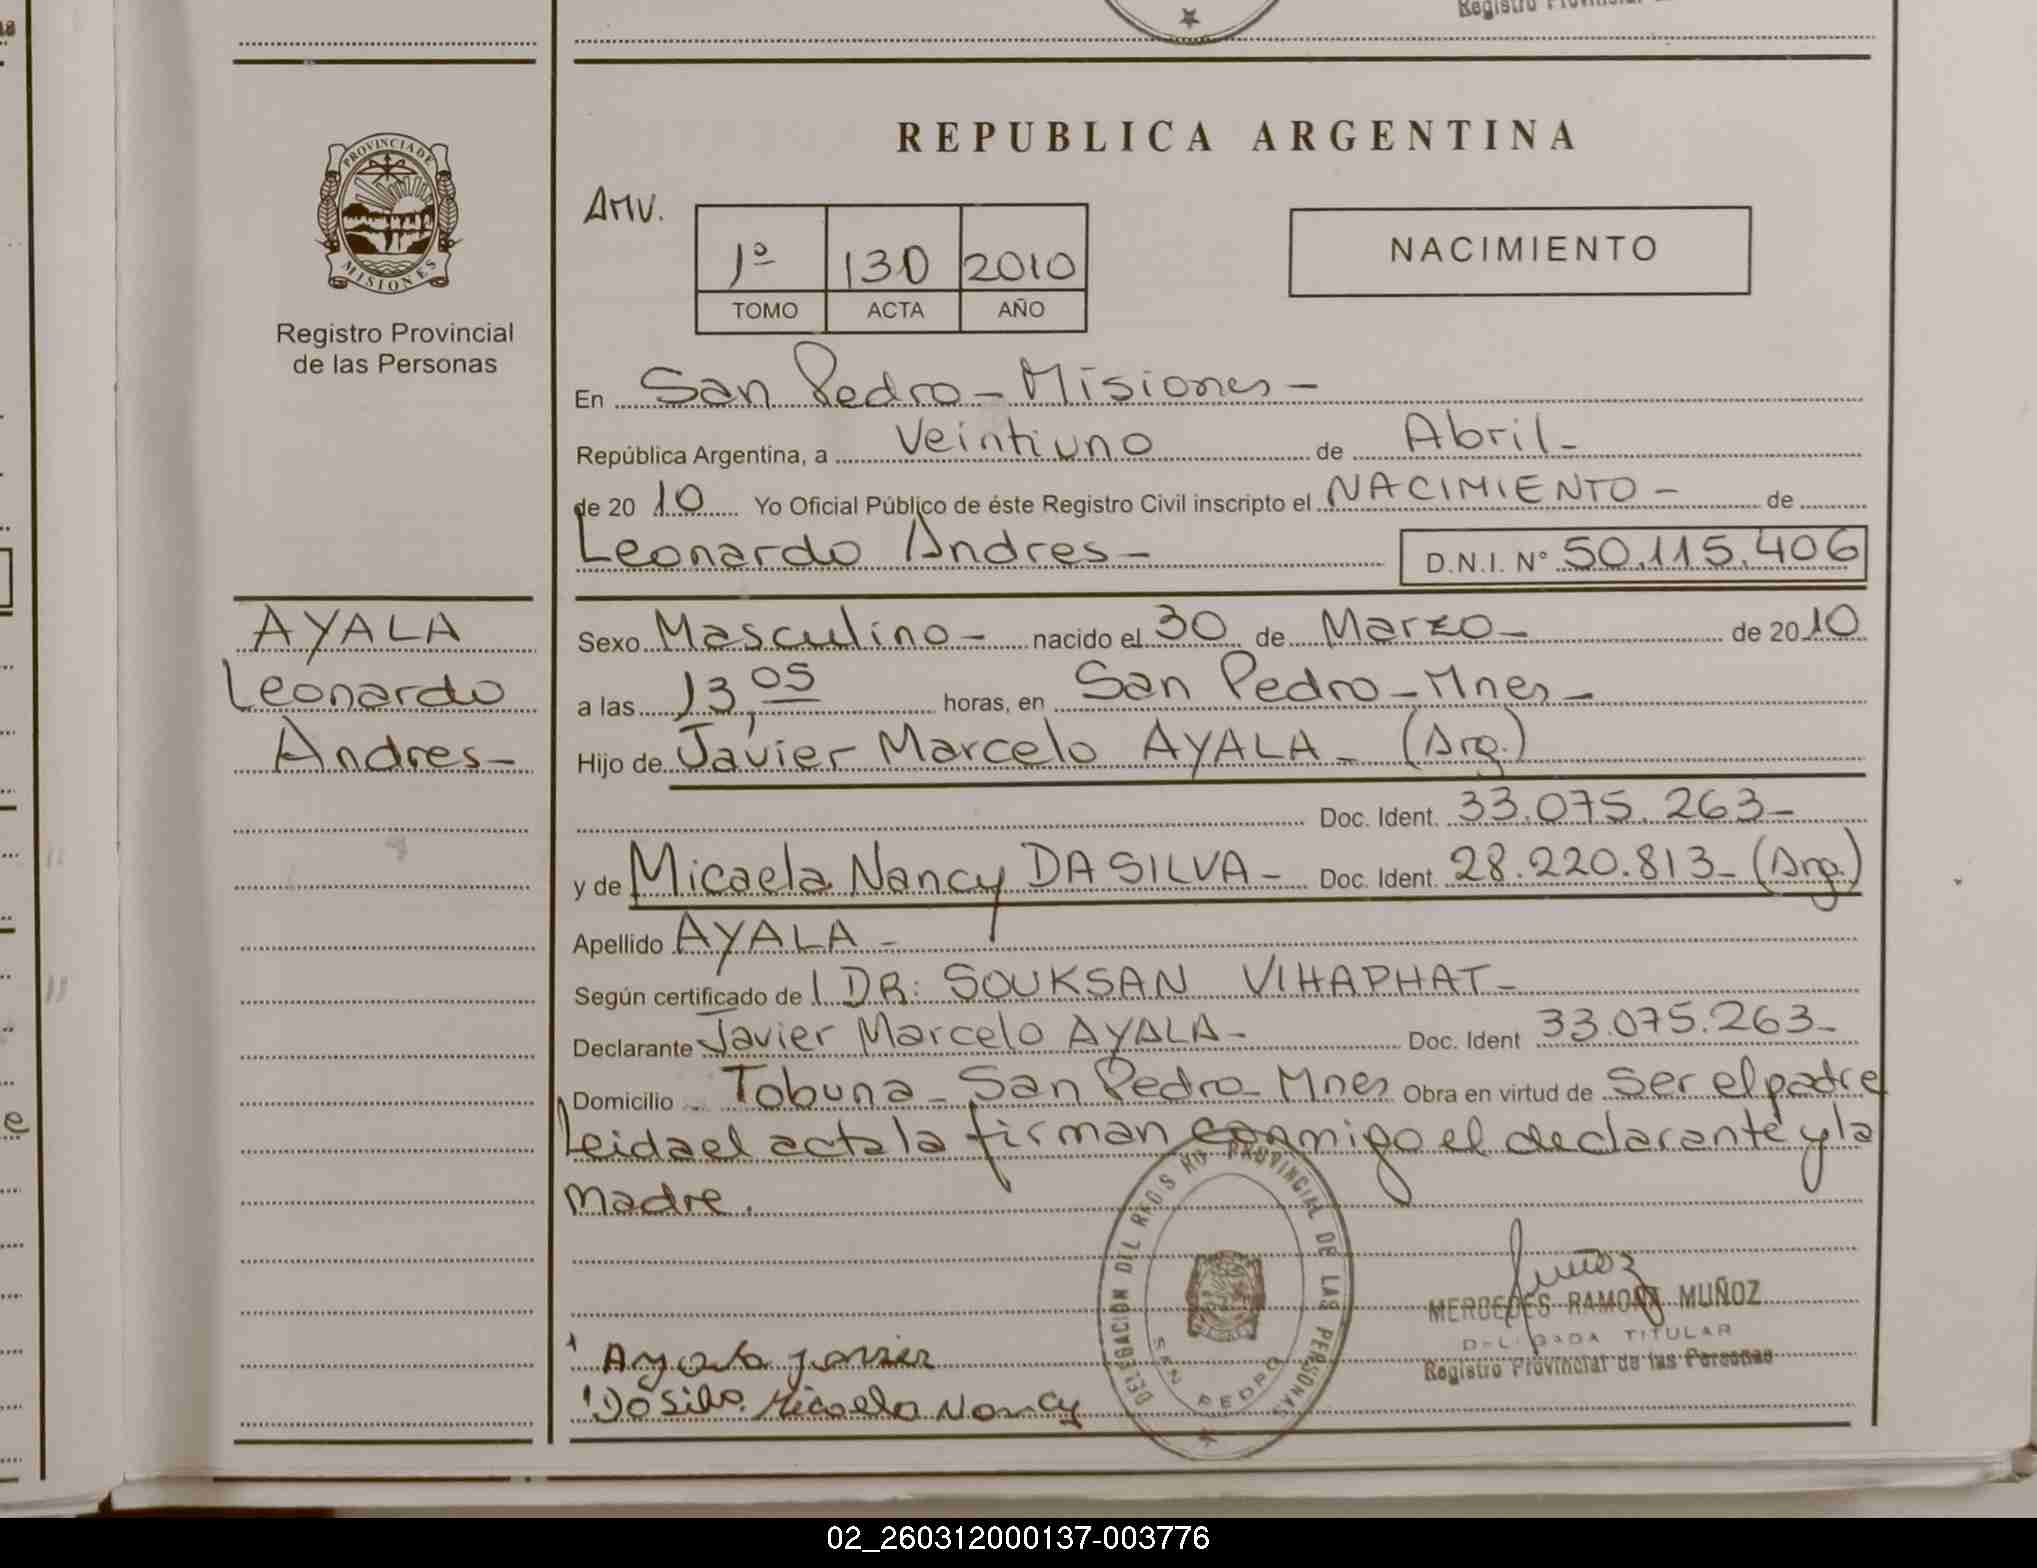 Registro Provincial
PROVINCIA DE
MISIONES
Registro Provincial
de las Personas
AYALA
Leonardo
Andres-
REPUBLICA ARGENTINA
AMV.
1º 130 2010
TOMO ACTA AÑO
NACIMIENTO
En San Pedro - Misiones -
República Argentina, a Veintiuno de Abril -
de 20 10 Yo Oficial Público de éste Registro Civil inscripto el NACIMIENTO - de
Leonardo Andres - D.N.I. Nº 50.115.406
Sexo Masculino - nacido el 30 de Marzo - de 20 10
a las 13,05 horas, en San Pedro - Mnes -
Hijo de Javier Marcelo AYALA - (Arg.)
Doc. Ident. 33.075.263 -
y de Micaela Nancy DA SILVA - Doc. Ident. 28.220.813 - (Arg.)
Apellido AYALA -
Según certificado de l DR: SOUKSAN VIHAPHAT -
Declarante Javier Marcelo AYALA - Doc. Ident 33.075.263 -
Domicilio Tobuna - San Pedro - Mnes Obra en virtud de ser el padre
Leida el acta la firman conmigo el declarante y la
madre.
DELEGACION DEL REGISTRO PROVINCIAL DE LAS PERSONAS
SAN PEDRO
Muñoz
MERCEDES RAMONA MUÑOZ
DELEGADA TITULAR
Registro Provincial de las Personas
Ayala Javier
Da Silva Micaela Nancy
02_260312000137-003776